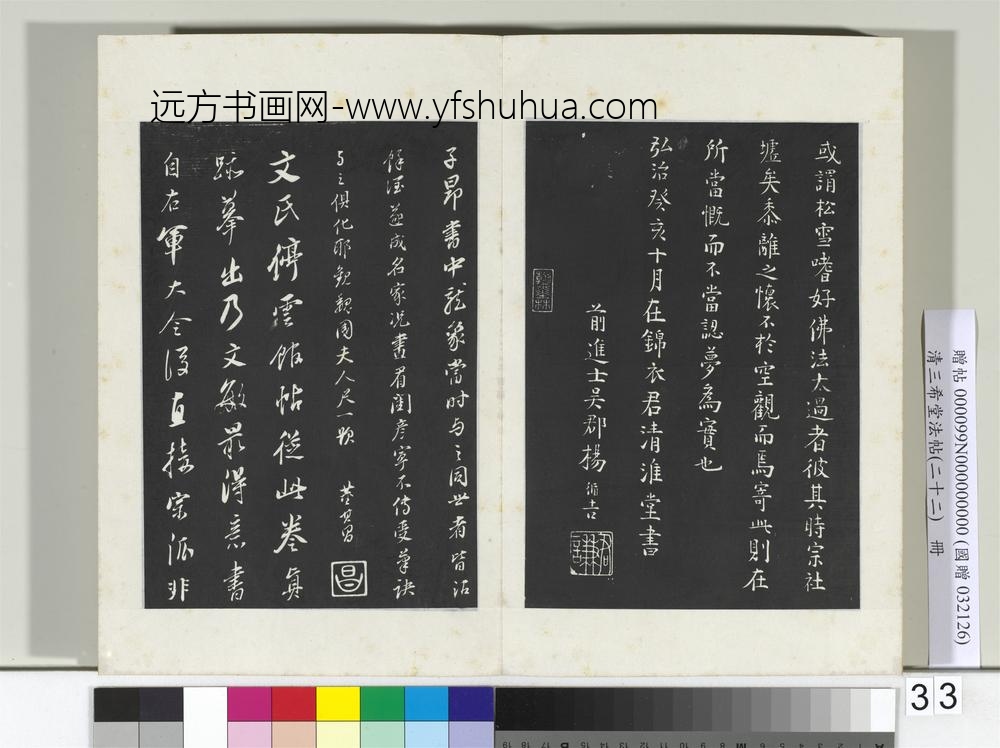 远方书画网-www.yfshuhua.com
或謂松雪嗜好佛法太過者彼其時宗社
墟矣黍離之懷不於空觀而焉寄此則在
所當慨而不當認夢為實也
弘治癸亥十月在錦衣君清淮堂書
前進士吳郡楊循吉
子昂書中龍象當时与之同世者皆沾
餘瀝並成名家况書有閨房寧不傳受筆訣
与之俱化耶觀魏國夫人尺一題
董其昌
文氏停雲館帖從此卷真
跡摹出乃文敏最得意書
自右軍大令後直接宗派非
贈帖 000099N000000000 (國贈 032126)
清三希堂法帖(二十二) 冊
33